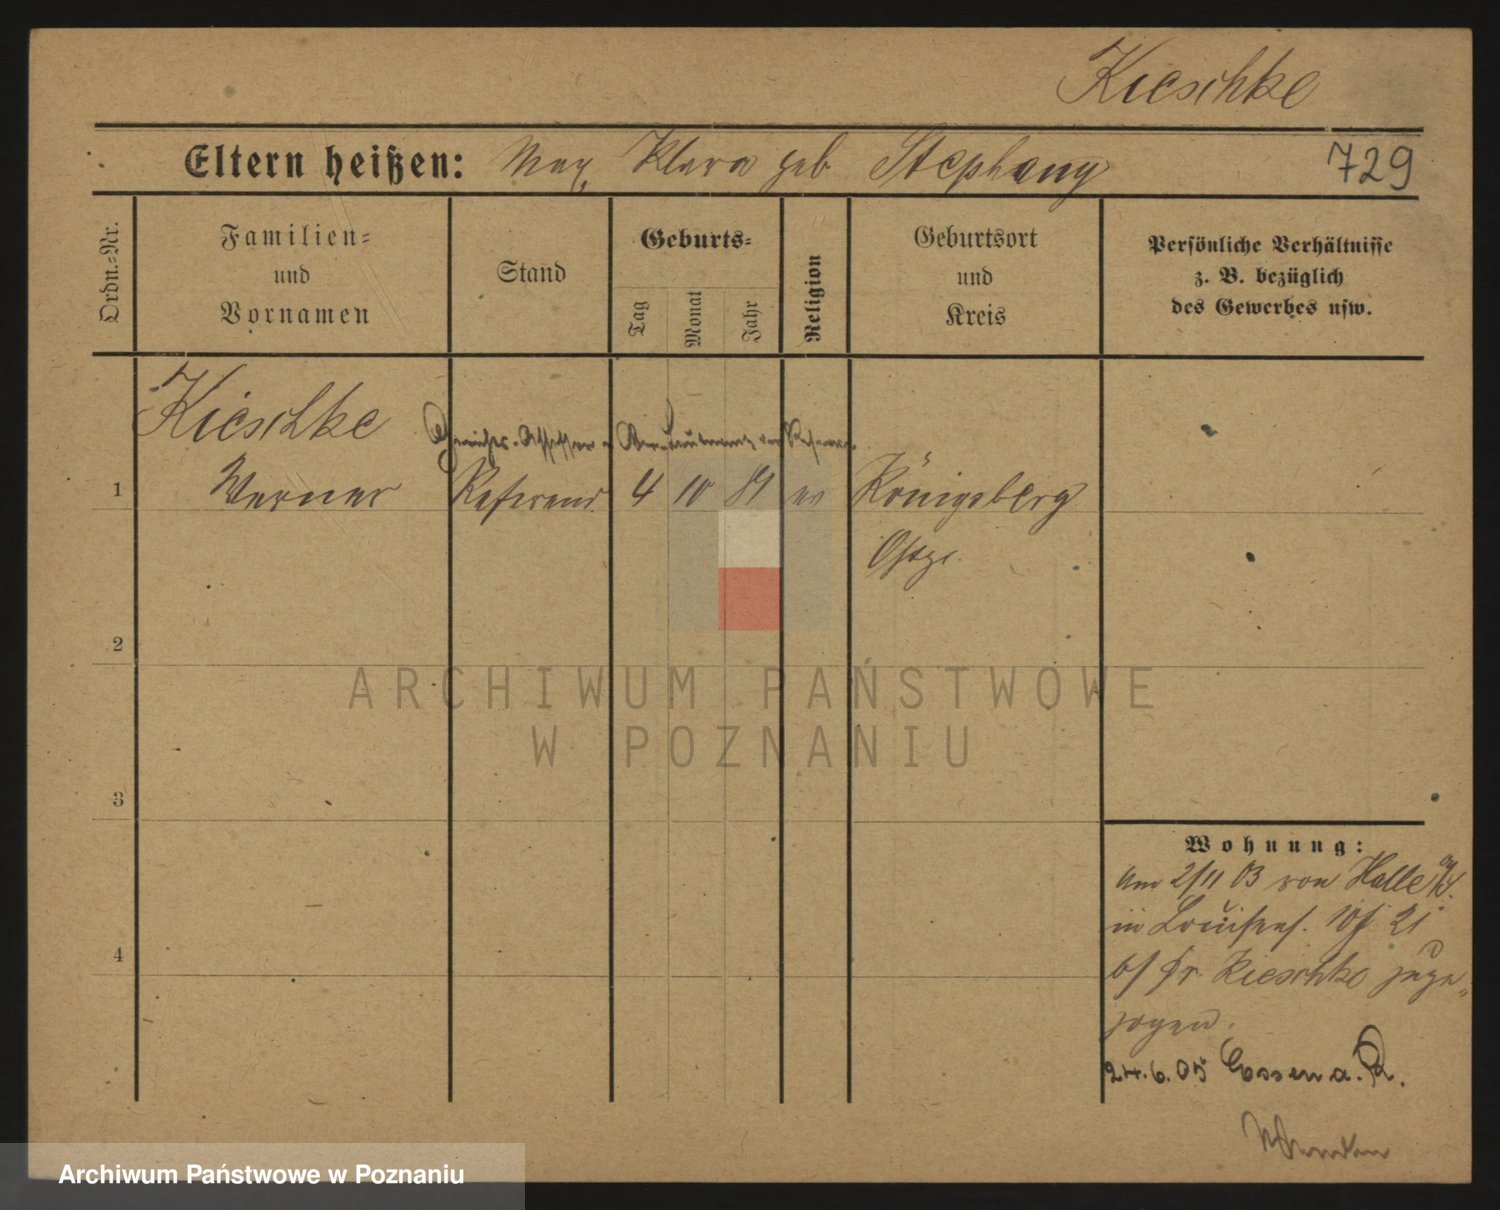 Kieschke
Eltern heißen: Max, Klara geb Stephany 729
Ordn.=Nr.
Familien=
und
Vornamen
Stand
Geburts=
Tag
Monat
Jahr
Religion
Geburtsort
und
Kreis
Persönliche Verhältnisse
z. B. bezüglich
des Gewerbes usw.
Kieschke
Gerichts-Assessor
1 Werner Referend. 4 10 ev Königsberg
Ostpr.
2
ARCHIWUM PAŃSTWOWE
W POZNANIU
3
4
Wohnung:
Am 2/11 03 von Halle a/S.
in Louisenst. 21
b/ Fr. Kieschke zuge„
zogen.
24.6.05 Essen a. R.
Archiwum Państwowe w Poznaniu